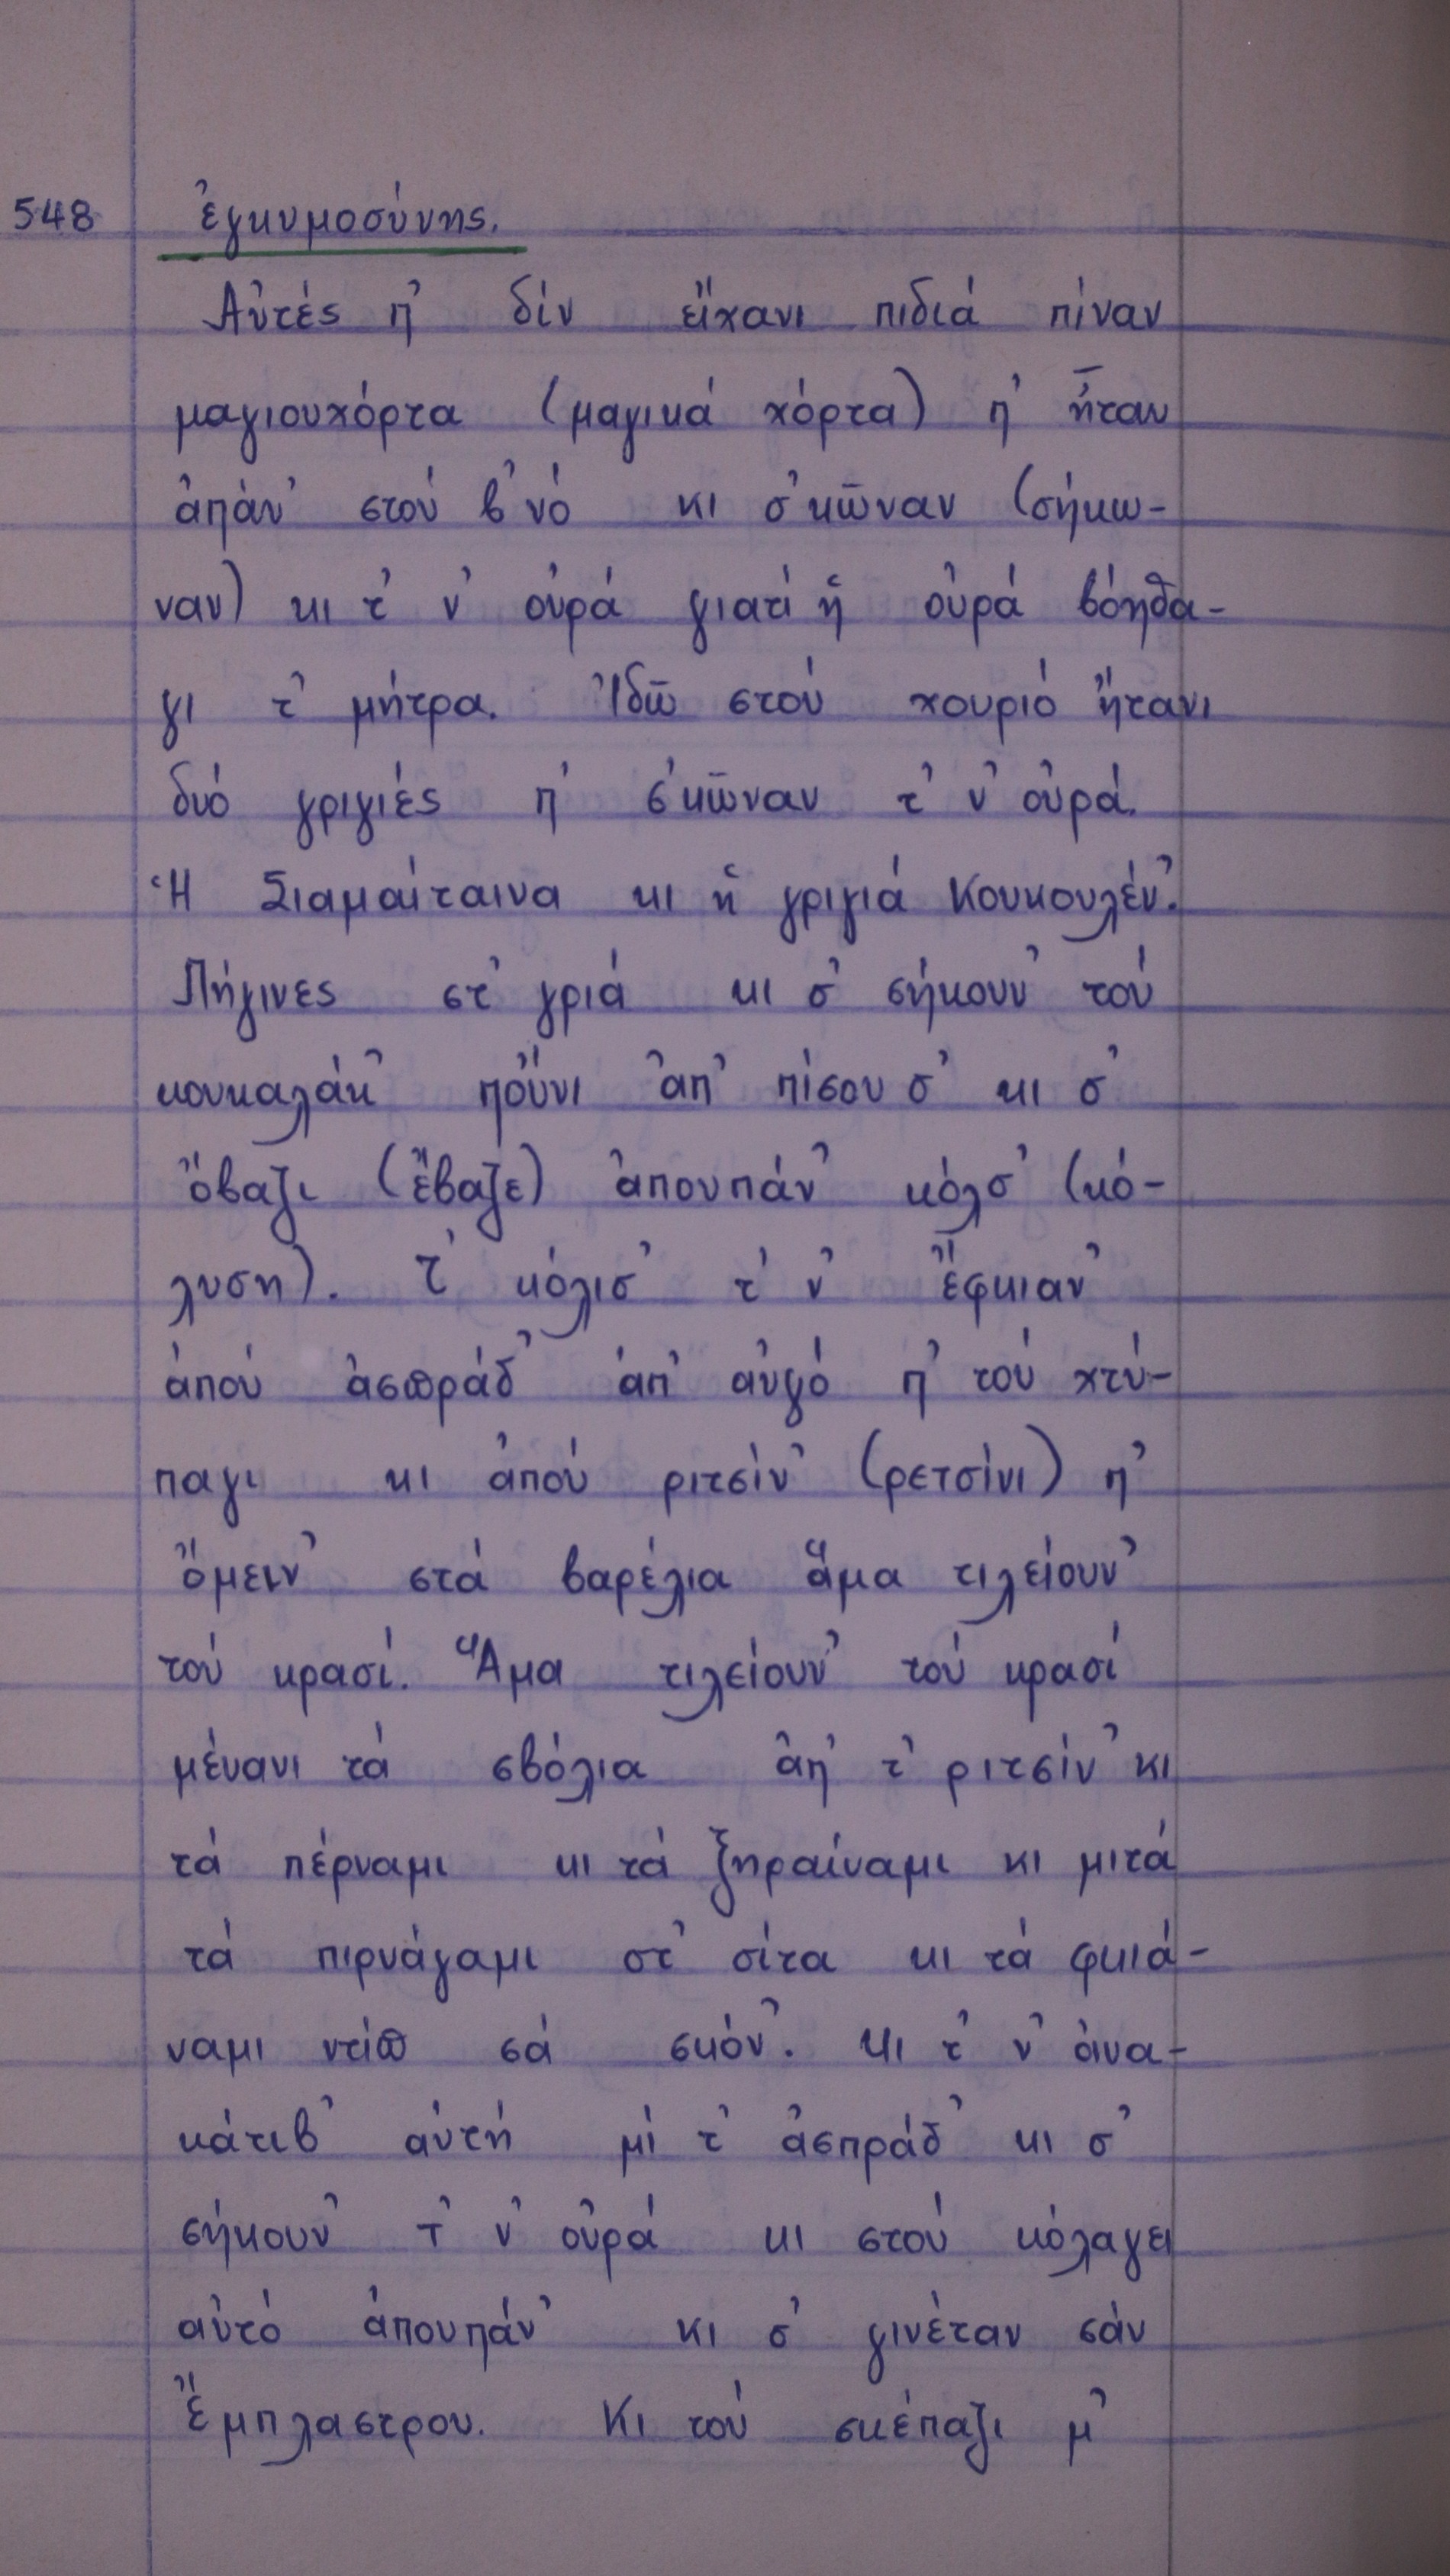 548 ἐγκυμοσύνης.
Αὐτές π' δίν εἴχανι πιδιά πίναν
μαγιουχόρτα (μαγικά χόρτα) π' ἦταν
ἀπάν' στού β'νό κι σ'κῶναν (σήκω-
ναν) κι τ' ν' οὐρά γιατί ἡ οὐρά βόηθα-
γι τ' μήτρα. Ἰδῶ στού χουριό ἤτανι
δυό γριγιές π' σ'κῶναν τ' ν' οὐρά.
Ἡ Σιαμαίταινα κι ἡ γριγιά Κουκουλέν'.
Πήγινες στ' γριά κι σ' σήκουν' τού
κουκαλάκ' πὄϋνι ἀπ' πίσου σ' κι σ'
ὄβαζι (ἔβαζε) ἀπουπάν' κόλσ' (κό-
λυση). Τ' κόλισ' τ' ν' ἔφκιαν'
ἀπού ἀσπράδ' ἀπ' αὐγό π' τού χτύ-
παγι κι ἀπού ριτσίν' (ρετσίνι) π'
ὄμειν' στά βαρέλια ἅμα τιλείουν'
τού κρασί. Ἅμα τιλείουν' τού κρασί
μέναι τά σβόλια ἀπ' τ' ριτσίν' κι
τά πέρναμι κι τά ξηραίναμι κι μιτά
τά πιρνάγαμι στ' σίτα κι τά φκιά-
ναμι ντίπ σά σκόν'. Κι τ' ν' ἀνα-
κάτιβ' αὐτή μί τ' ἀσπράδ' κι σ'
σήκουν' τ' ν' οὐρά κι στού κόλαγει
αὐτό ἀπουπάν' κι σ' γινέταν σάν
Ἔμπλαστρου. Κι τού σκέπαζι μ'